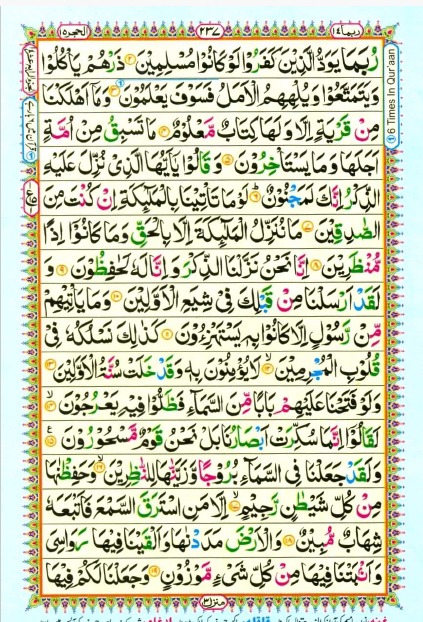 ربما ١٤
٢٣٧
الحجر ١٥
رُبَمَا يَوَدُّ الَّذِيْنَ كَفَرُوْا لَوْ كَانُوْا مُسْلِمِيْنَ ۝۲ ذَرْهُمْ يَاْكُلُوْا
وَيَتَمَتَّعُوْا وَيُلْهِهِمُ الْاَمَلُ فَسَوْفَ يَعْلَمُوْنَ ۝۳ وَمَاۤ اَهْلَكْنَا
مِنْ قَرْيَةٍ اِلَّا وَلَهَا كِتَابٌ مَّعْلُوْمٌ ۝۴ مَا تَسْبِقُ مِنْ اُمَّةٍ
اَجَلَهَا وَمَا يَسْتَاْخِرُوْنَ ۝۵ وَقَالُوْا يٰۤاَيُّهَا الَّذِيْ نُزِّلَ عَلَيْهِ
الذِّكْرُ اِنَّكَ لَمَجْنُوْنٌ ۝۶ لَوْ مَا تَاْتِيْنَا بِالْمَلٰٓئِكَةِ اِنْ كُنْتَ مِنَ
الصّٰدِقِيْنَ ۝۷ مَا نُنَزِّلُ الْمَلٰٓئِكَةَ اِلَّا بِالْحَقِّ وَمَا كَانُوْۤا اِذًا
مُّنْظَرِيْنَ ۝۸ اِنَّا نَحْنُ نَزَّلْنَا الذِّكْرَ وَاِنَّا لَهٗ لَحٰفِظُوْنَ ۝۹ وَ
لَقَدْ اَرْسَلْنَا مِنْ قَبْلِكَ فِيْ شِيَعِ الْاَوَّلِيْنَ ۝۱۰ وَمَا يَاْتِيْهِمْ
مِّنْ رَّسُوْلٍ اِلَّا كَانُوْا بِهٖ يَسْتَهْزِءُوْنَ ۝۱۱ كَذٰلِكَ نَسْلُكُهٗ فِيْ
قُلُوْبِ الْمُجْرِمِيْنَ ۝۱۲ لَا يُؤْمِنُوْنَ بِهٖ وَقَدْ خَلَتْ سُنَّةُ الْاَوَّلِيْنَ ۝۱۳
وَلَوْ فَتَحْنَا عَلَيْهِمْ بَابًا مِّنَ السَّمَآءِ فَظَلُّوْا فِيْهِ يَعْرُجُوْنَ ۝۱۴
لَقَالُوْۤا اِنَّمَا سُكِّرَتْ اَبْصَارُنَا بَلْ نَحْنُ قَوْمٌ مَّسْحُوْرُوْنَ ۝۱۵
وَلَقَدْ جَعَلْنَا فِي السَّمَآءِ بُرُوْجًا وَّزَيَّنّٰهَا لِلنّٰظِرِيْنَ ۝۱۶ وَحَفِظْنٰهَا
مِنْ كُلِّ شَيْطٰنٍ رَّجِيْمٍ ۝۱۷ اِلَّا مَنِ اسْتَرَقَ السَّمْعَ فَاَتْبَعَهٗ
شِهَابٌ مُّبِيْنٌ ۝۱۸ وَالْاَرْضَ مَدَدْنٰهَا وَاَلْقَيْنَا فِيْهَا رَوَاسِيَ
وَاَنْۢبَتْنَا فِيْهَا مِنْ كُلِّ شَيْءٍ مَّوْزُوْنٍ ۝۱۹ وَجَعَلْنَا لَكُمْ فِيْهَا
منزل ٣
6 Times In Qur'aan